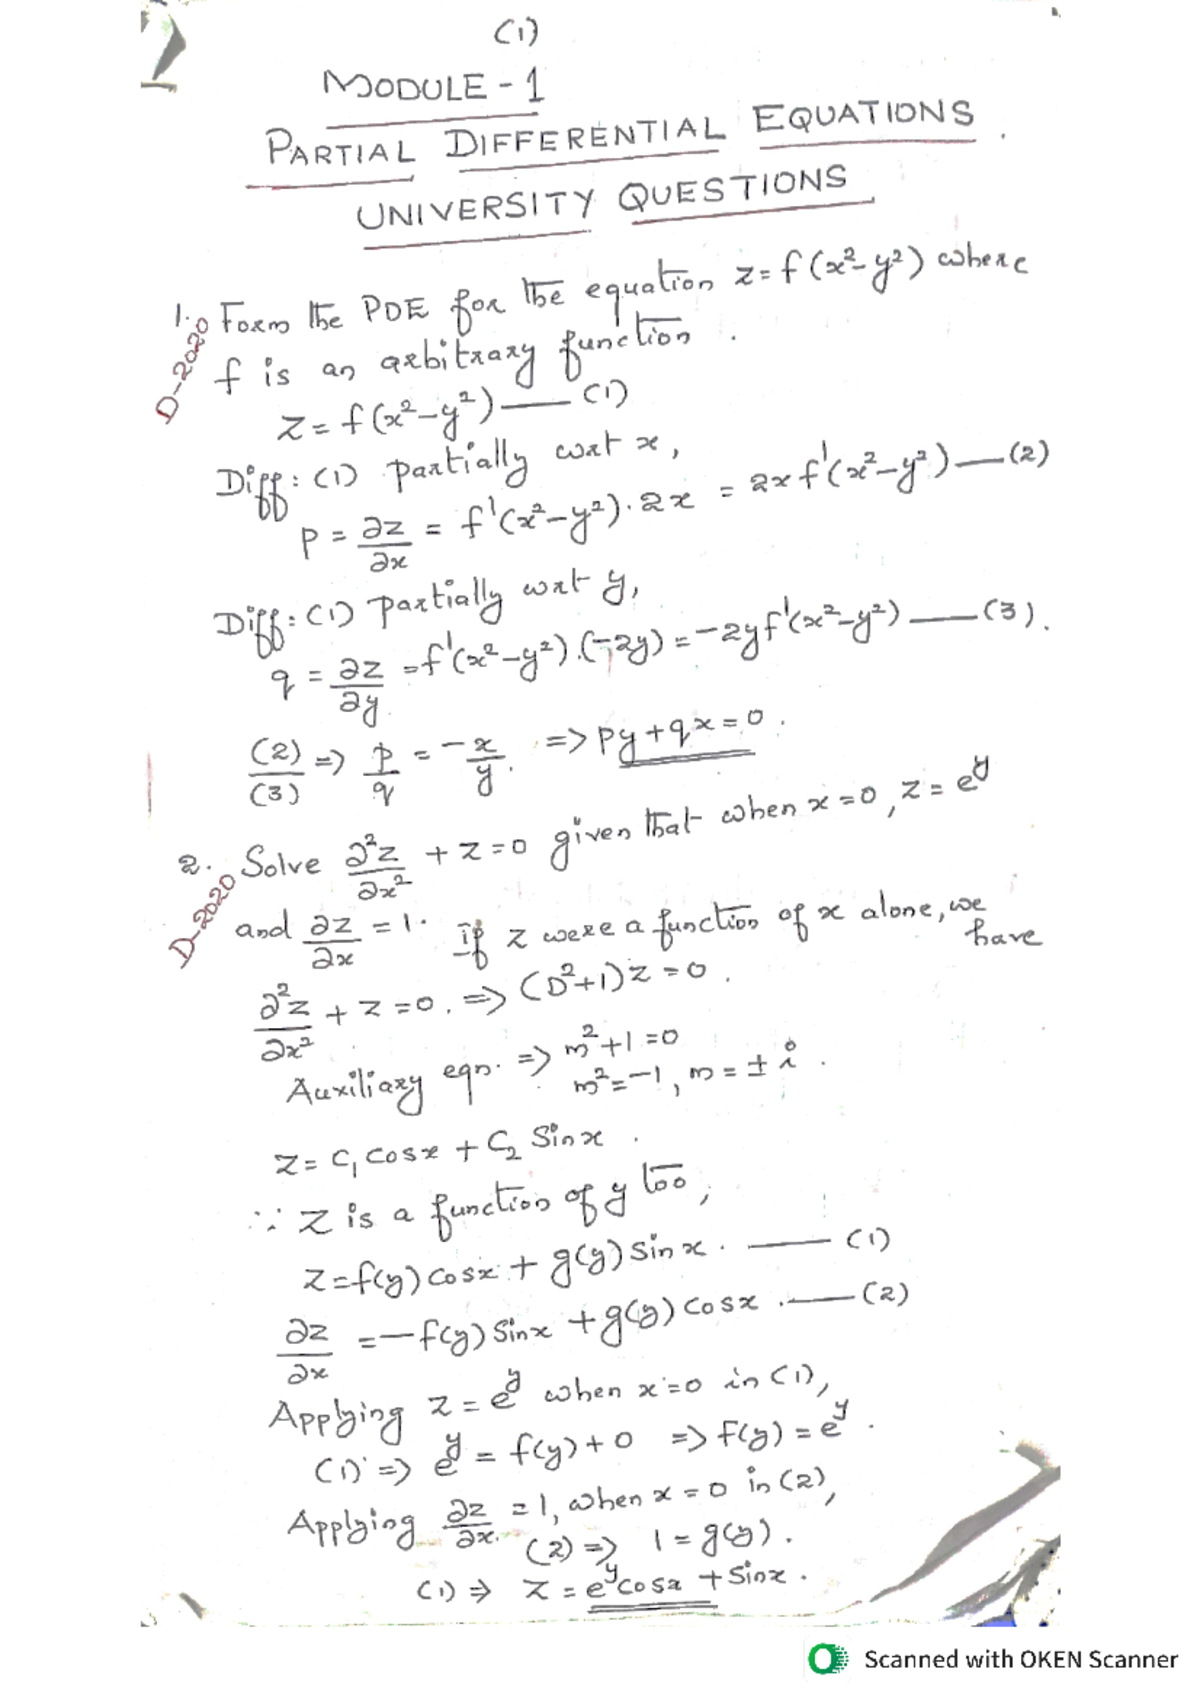 (1)
MODULE - 1
PARTIAL DIFFERENTIAL EQUATIONS.
UNIVERSITY QUESTIONS
1. Form the PDE for the equation z = f(x²-y²) where
D-2020
f is an arbitrary function.
z = f(x²-y²) —— (1)
Diff: (1) partially wrt x,
p = ∂z/∂x = f'(x²-y²). 2x = 2x f'(x²-y²) — (2)
Diff: (1) partially wrt y,
q = ∂z/∂y = f'(x²-y²).(-2y) = -2y f'(x²-y²) —— (3).
(2)/(3) => p/q = -x/y. => py + qx = 0.
2. Solve ∂²z/∂x² + z = 0 given that when x = 0, z = e^y
D-2020
and ∂z/∂x = 1. if z were a function of x alone, we have
∂²z/∂x² + z = 0. => (D²+1)z = 0.
Auxiliary eqn. => m²+1 = 0
m² = -1, m = ± i.
z = C₁ cosx + C₂ Sinx.
∵ z is a function of y too,
z = f(y) cosx + g(y) sinx. —— (1)
∂z/∂x = -f(y) Sinx + g(y) cosx. —— (2)
Applying z = e^y when x = 0 in (1),
(1) => e^y = f(y) + 0 => f(y) = e^y.
Applying ∂z/∂x = 1, when x = 0 in (2),
(2) => 1 = g(y).
(1) => z = e^y cosx + Sinx.
Scanned with OKEN Scanner